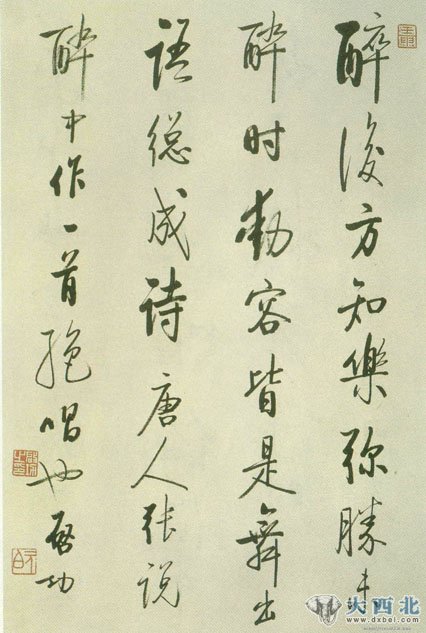 醉後方知樂弥勝未
醉时動容皆是舞出
語總成詩唐人张说
醉中作一首绝唱也启功
大西北
www.dxbei.com